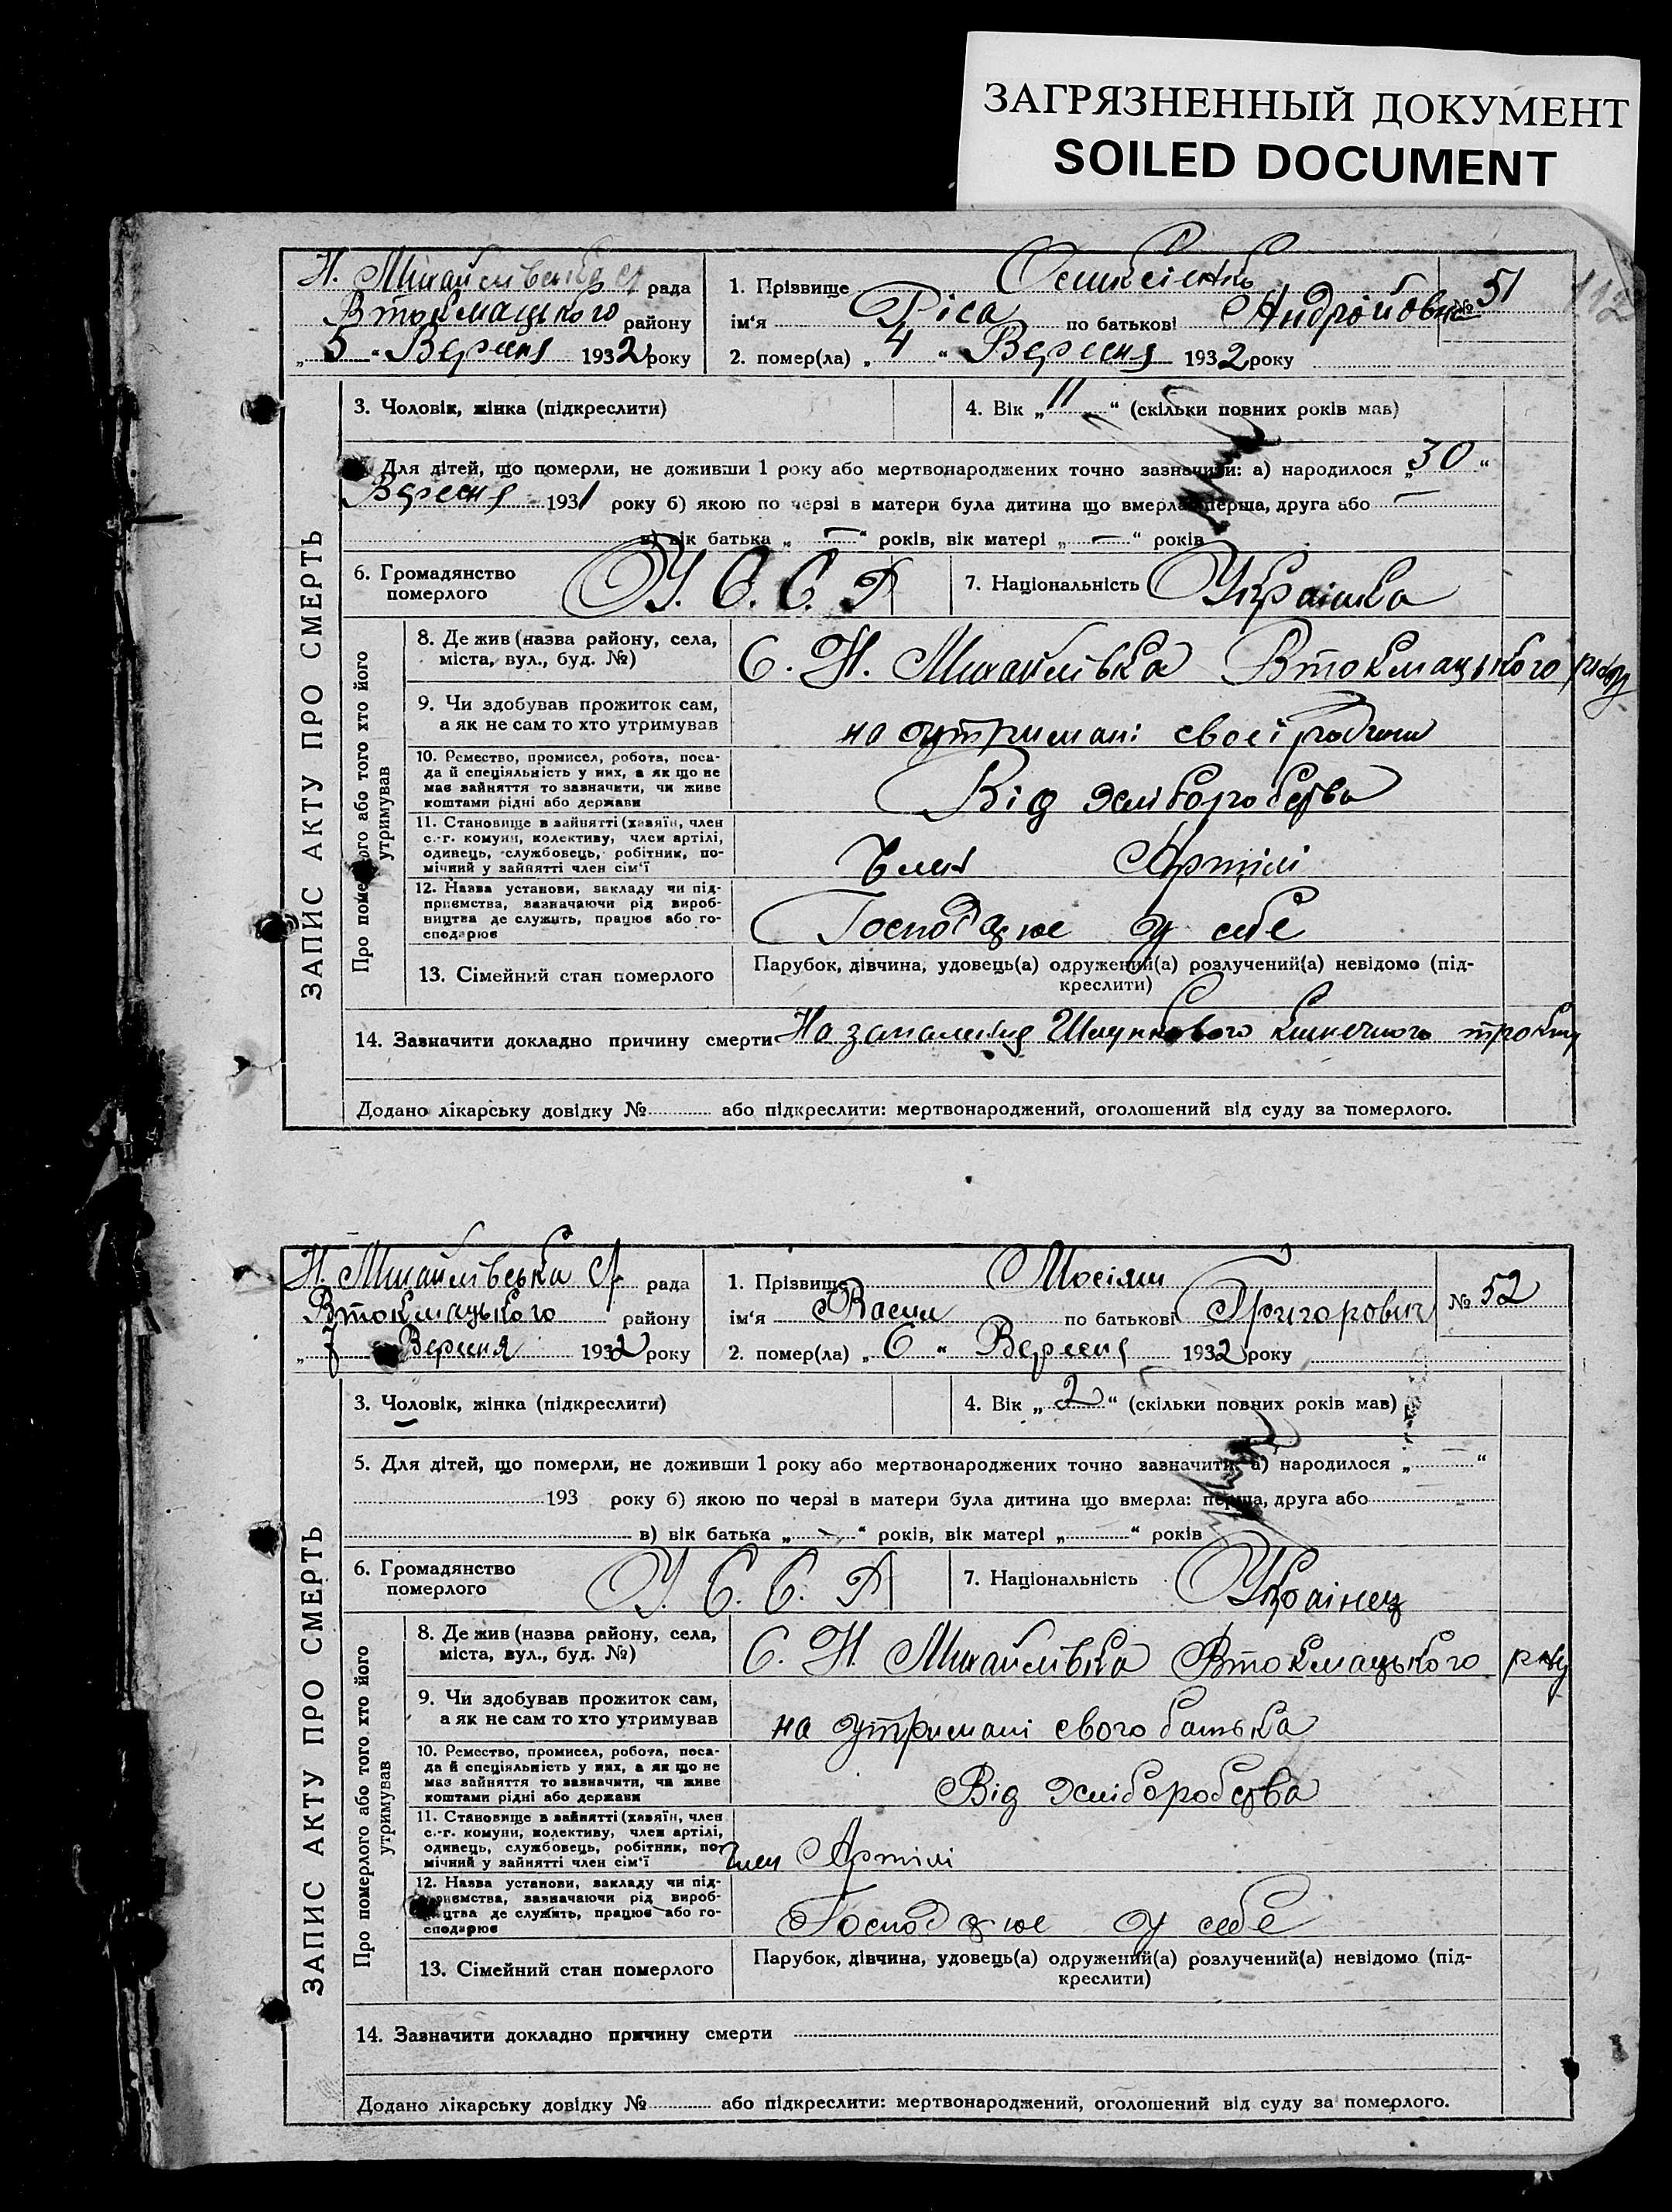 ЗАГРЯЗНЕННЫЙ ДОКУМЕНТ
SOILED DOCUMENT
112
Н. Михайлівська с/ рада
Втокмацького району
„5“ Вересня 1932 року
1. Прізвище
ім‘я Ріса по батькові Андрійовна № 51
2. помер(ла) „4“ Вересня 1932 року
3. Чоловік, жінка (підкреслити)
4. Вік „11“ (скільки повних років мав)
Для дітей, що померли, не доживши 1 року або мертвонароджених точно зазначити: а) народилося „30“
Вересня 1931 року б) якою по черзі в матери була дитина що вмерла: перша, друга або —
в) вік батька „—“ років, вік матері „—“ років
6. Громадянство
померлого
У. С. С. Р
7. Національність Українка
ЗАПИС АКТУ ПРО СМЕРТЬ
Про померлого або того хто його
утримував
8. Де жив (назва району, села,
міста, вул., буд. №)
С. Н. Михайлівка Втокмацького р-ну
9. Чи здобував прожиток сам,
а як не сам то хто утримував
на отримані своєї родини
10. Ремество, промисел, робота, поса-
да й спеціяльність у них, а як що не
має зайняття то зазначити, чи живе
коштами рідні або держави
Від хліборобства
11. Становище в зайнятті (хазяїн, член
с.-г. комуни, колективу, член артілі,
одинець, службовець, робітник, по-
мічний у зайнятті член сім‘ї
Член Артілі
12. Назва установи, закладу чи під-
приємства, зазначаючи рід вироб-
ництва де служить, працює або го-
сподарює
Господарює у себе
13. Сімейний стан померлого
Парубок, дівчина, удовець(а) одружений(а) розлучений(а) невідомо (під-
креслити)
14. Зазначити докладно причину смерти На запаленія Шлункового кишечного тракту
Додано лікарську довідку № або підкреслити: мертвонароджений, оголошений від суду за померлого.
Н. Михайлівська с/ рада
Втокмацького району
„7“ Вересня 1932 року
1. Прізвище Мосіяш
ім‘я Васил по батькові Григорович № 52
2. помер(ла) „6“ Вересня 1932 року
3. Чоловік, жінка (підкреслити)
4. Вік „2“ (скільки повних років мав)
5. Для дітей, що померли, не доживши 1 року або мертвонароджених точно зазначити: а) народилося „ “
193 року б) якою по черзі в матери була дитина що вмерла: перша, друга або
в) вік батька „—“ років, вік матері „ “ років
6. Громадянство
померлого
У. С. С. Р
7. Національність Українец
ЗАПИС АКТУ ПРО СМЕРТЬ
Про померлого або того хто його
утримував
8. Де жив (назва району, села,
міста, вул., буд. №)
С. Н. Михайлівка Втокмацького р-ну
9. Чи здобував прожиток сам,
а як не сам то хто утримував
на утримані свого батька
10. Ремество, промисел, робота, поса-
да й спеціяльність у них, а як що не
має зайняття то зазначити, чи живе
коштами рідні або держави
Від хліборобства
11. Становище в зайнятті (хазяїн, член
с.-г. комуни, колективу, член артілі,
одинець, службовець, робітник, по-
мічний у зайнятті член сім‘ї
Член Артілі
12. Назва установи, закладу чи під-
приємства, зазначаючи рід вироб-
ництва де служить, працює або го-
сподарює
Господарює у себе
13. Сімейний стан померлого
Парубок, дівчина, удовець(а) одружений(а) розлучений(а) невідомо (під-
креслити)
14. Зазначити докладно причину смерти
Додано лікарську довідку № або підкреслити: мертвонароджений, оголошений від суду за померлого.